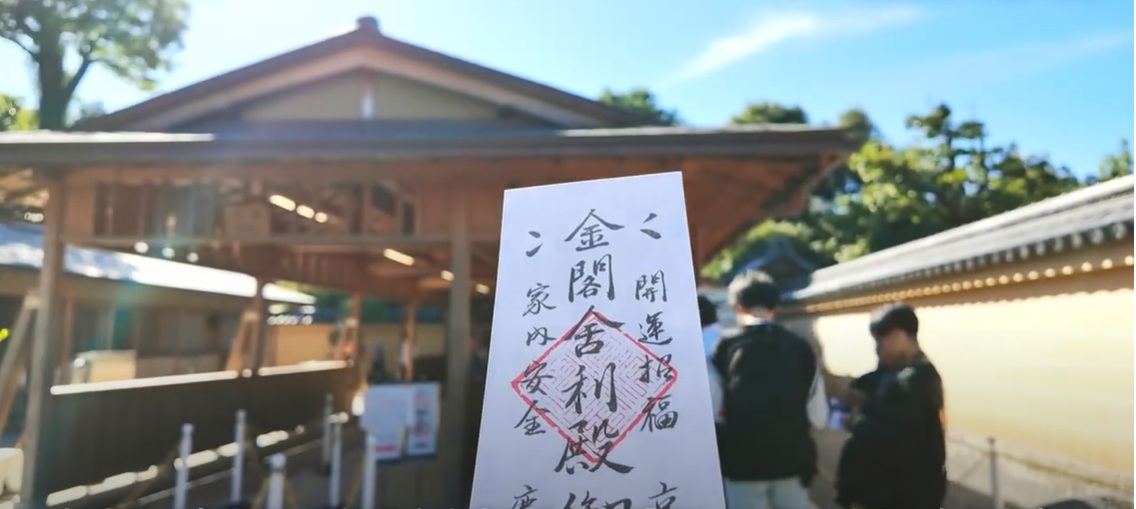 開運招福
金閣舎利殿御
家内安全